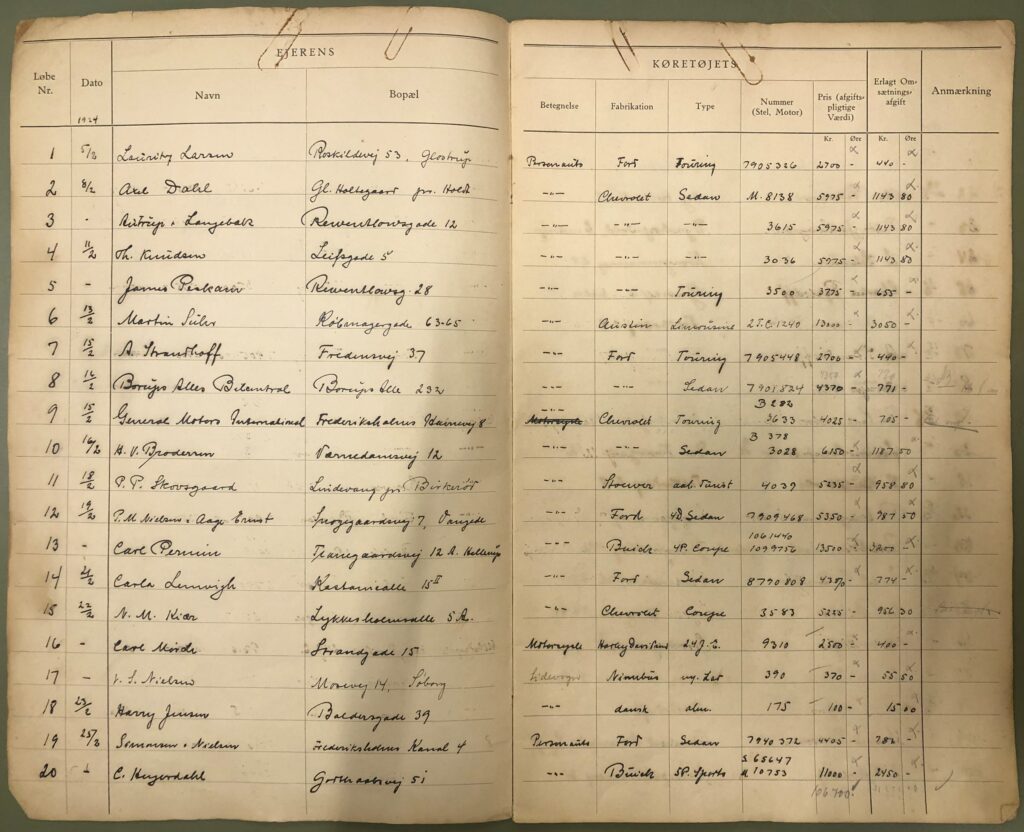 EJERENS
KØRETØJETS
Løbe Nr. Dato Navn Bopæl Betegnelse Fabrikation Type Nummer (Stel, Motor) Pris (afgiftspligtige Værdi) Erlagt Omsætningsafgift Anmærkning
Kr. Øre Kr. Øre
1 Lauritz Larsen Roskildevej 53, Glostrup Personauto Ford Touring 7905326 2700 - 440 -
2 8/2 Axel Dahl Gl. Holtegaard pr. Holte -"- Chevrolet Sedan M. 8138 5975 - 1143 80
3 Langebæk Reventlowsgade 12 -"- -"- -"- 3615 5975 - 1143 80
4 11/2 Th. Knudsen Leifsgade 5 -"- -"- -"- 3036 5975 - 1143 80
5 - James Reventlowsg. 28 -"- -"- Touring 3500 3775 - 655 -
6 13/2 Martin Suhr Købmagergade 63-65 -"- Austin Limousine 13000 - 3050 -
7 15/2 A. Strandhoff Fredensvej 37 -"- Ford Touring 7905448 2700 - 440 -
8 Borups Alles Bilcentral Borups Alle 232 -"- -"- Sedan 7908524 4370 - 771 -
B 282
9 15/2 General Motors International Frederiksholms Havnevej 8 Motorcycle Chevrolet Touring 3633 4025 - 705 -
B 378
10 16/2 H. V. Brodersen Værnedamsvej 12 -"- -"- Sedan 3028 6150 - 1187 50
11 18/2 P. P. Skovsgaard Lindevang pr. Birkerød -"- Stoewer 4039 5235 - 958 80
12 19/2 P. M. Nielsen & Aage Ernst 7, Vangede -"- Ford 4D. Sedan 7909468 5350 - 987 50
1061440
13 - Carl Permin 12 A. Hellerup -"- Buick 4P. Coupe 1099756 13500 - 3200 -
14 Carla Lemvigh Kastanicalle 15 II -"- Ford Sedan 8790808 - 774 -
15 22/2 N. M. Kiær Lykkesholmsalle 5 A. -"- Chevrolet Coupe 3583 5225 - 956 30
16 - Carl Strandgade 15 Motorcycle Harley Davidson 9310 2500 - 400 -
17 - Nielsen Mosevej 14, Søborg Sidevogn Nimbus 390 370 - 55 50
18 23/2 Harry Jensen Baldersgade 39 -"- dansk alm. 175 100 - 15 00
19 25/2 Sørensen & Nielsen Frederiksholms Kanal 4 Personauto Ford Sedan 7940372 4405 -
S 65647
20 C. Hegerdahl Godthaabsvej 51 -"- Buick 5P. Sports M 10753 11000 - 2450 -
106700